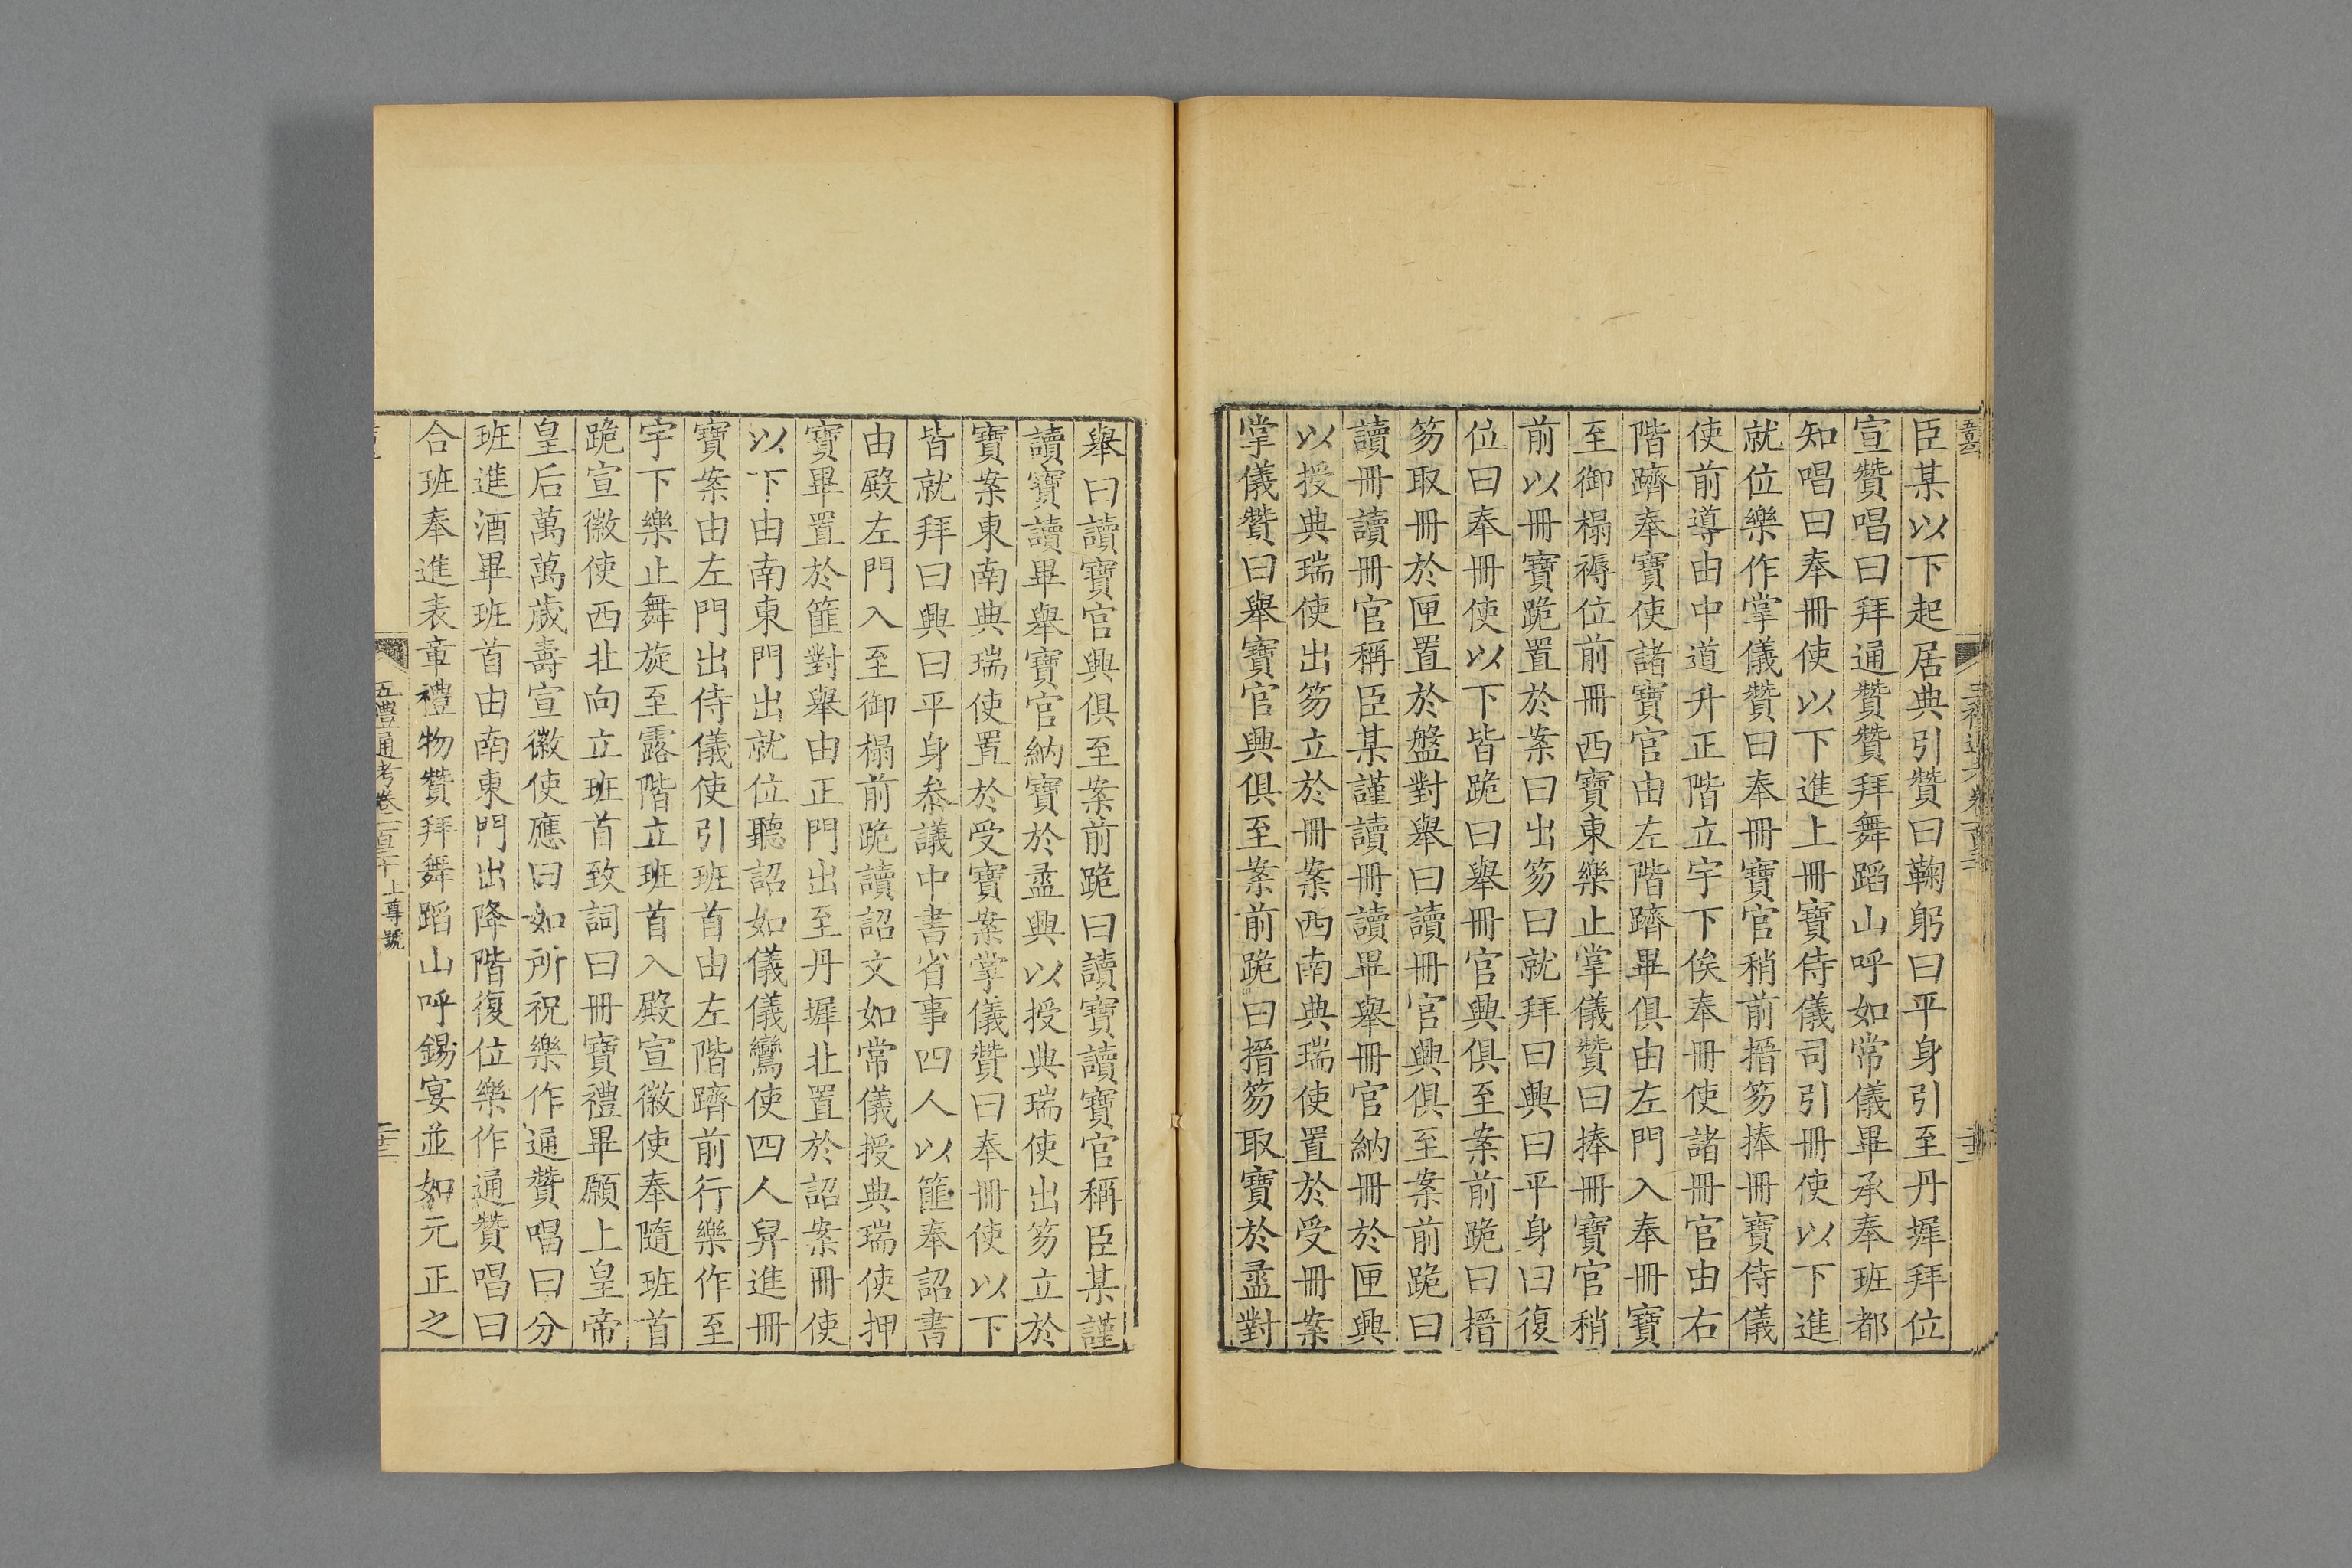 臣某以下起居典引贊曰鞠躬曰平身引至丹墀拜位
宣贊唱曰拜通贊贊拜舞蹈山呼如常儀畢承奉班都
知唱曰奉冊使以下進上冊寶侍儀司引冊使以下進
就位樂作掌儀贊曰奉冊寶官稍前搢笏捧冊寶侍儀
使前導由中道升正階立宇下俟奉冊使諸冊官由右
階躋奉寶使諸寶官由左階躋畢俱由左門入奉冊寶
至御榻褥位前冊西寶東樂止掌儀贊曰捧冊寶官稍
前以冊寶跪置於案曰出笏曰就拜曰興曰平身曰復
位曰奉冊使以下皆跪曰舉冊官興俱至案前跪曰搢
笏取冊於匣置於盤對舉曰讀冊官興俱至案前跪曰
讀冊讀冊官稱臣某謹讀冊讀畢舉冊官納冊於匣興
以授典瑞使出笏立於冊案西南典瑞使置於受冊案
掌儀贊曰舉寶官興俱至案前跪曰搢笏取寶於盝對
舉曰讀寶官興俱至案前跪曰讀寶讀寶官稱臣某謹
讀寶讀畢舉寶官納寶於盝興以授典瑞使出笏立於
寶案東南典瑞使置於受寶案掌儀贊曰奉冊使以下
皆就拜曰興曰平身叅議中書省事四人以篚奉詔書
由殿左門入至御榻前跪讀詔文如常儀授典瑞使押
寶畢置於篚對舉由正門出至丹墀北置於詔案冊使
以下由南東門出就位聽詔如儀儀鸞使四人舁進冊
寶案由左門出侍儀使引班首由左階躋前行樂作至
宇下樂止舞旋至露階立班首入殿宣徽使奉隨班首
跪宣徽使西北向立班首致詞曰冊寶禮畢願上皇帝
皇后萬萬歲壽宣徽使應曰如所祝樂作通贊唱曰分
班進酒畢班首由南東門出降階復位樂作通贊唱曰
合班奉進表章禮物贊拜舞蹈山呼錫宴並如元正之
五禮通考卷一百三十 上尊號